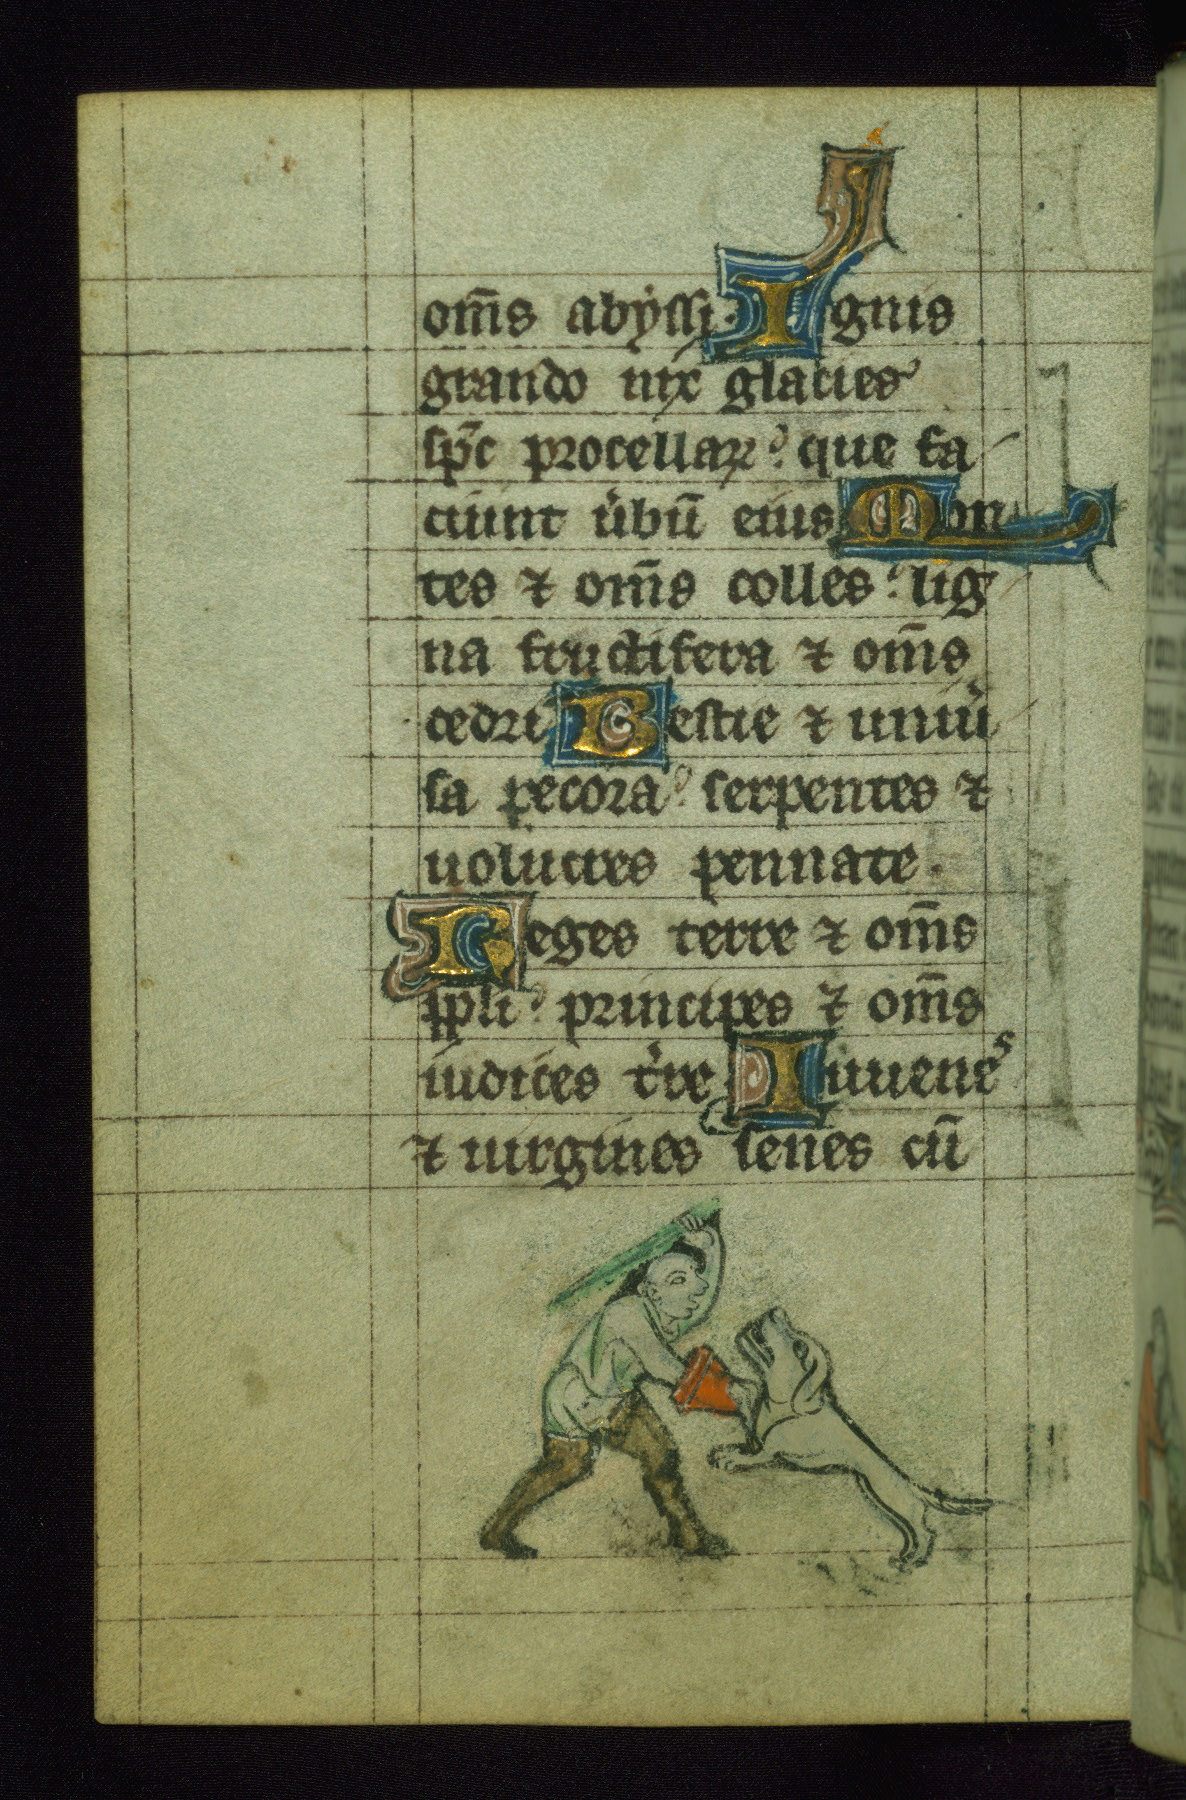 om̄s abyssi. Ignis
grando nix glacies
sp̄c procellaꝝ: que fa
ciunt u̓bū eius Mon
tes ⁊ om̄s colles: lig
na fructifera ⁊ om̄s
cedri Bestie ⁊ uniu̓
sa pecora: serpentes ⁊
uolucres pennate.
Reges terre ⁊ om̄s
ppl̓i: principes ⁊ om̄s
iudices t̓re Iuuenes
⁊ uirgines senes cū